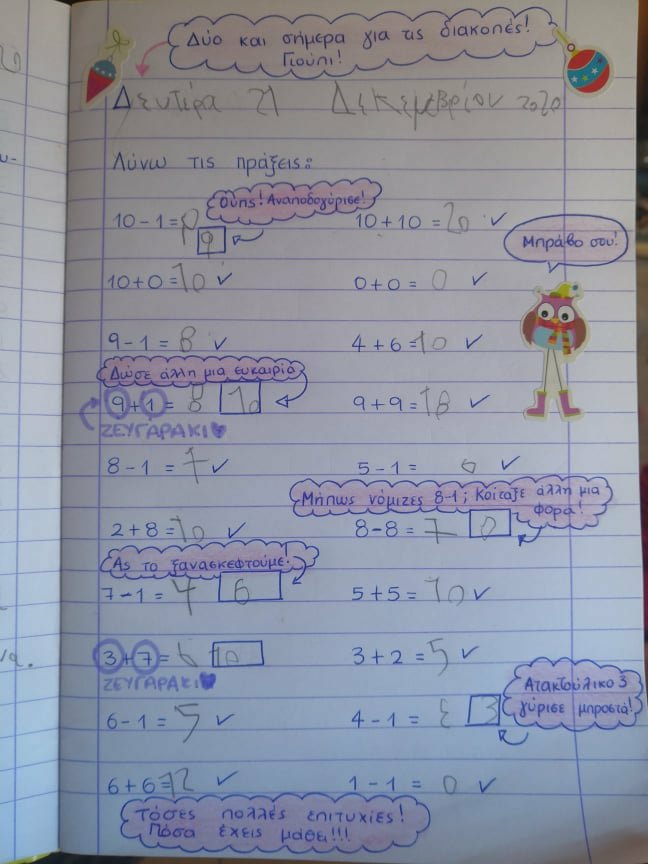 Δύο και σήμερα για τις διακοπές!
Γιούπι!
Δευτέρα 21 Δεκεμβρίου 2020
Λύνω τις πράξεις:
Ούπς! Αναποδογύρισε!
10 - 1 = 9 10 + 10 = 20 ✓
9
Μπράβο σου!
10 + 0 = 10 ✓ 0 + 0 = 0 ✓
9 - 1 = 8 ✓ 4 + 6 = 10 ✓
Δώσε άλλη μια ευκαιρία
9 + 1 = 8 10 9 + 9 = 18 ✓
ΖΕΥΓΑΡΑΚΙ
8 - 1 = 7 ✓ 5 - 1 = ✓
Μήπως νόμιζες 8-1; Κοίταξε άλλη μια
φορά!
2 + 8 = 10 ✓ 8 - 8 = 7 0
Ας το ξανασκεφτούμε.
7 - 1 = 4 6 5 + 5 = 10 ✓
3 + 7 = 6 10 3 + 2 = 5 ✓
ΖΕΥΓΑΡΑΚΙ
Ατακτούλικο 3
γύρισε μπροστά!
6 - 1 = 5 ✓ 4 - 1 = Ɛ 3
6 + 6 = 12 ✓ 1 - 1 = 0 ✓
Τόσες πολλές επιτυχίες!
Πόσα έχεις μάθει!!!